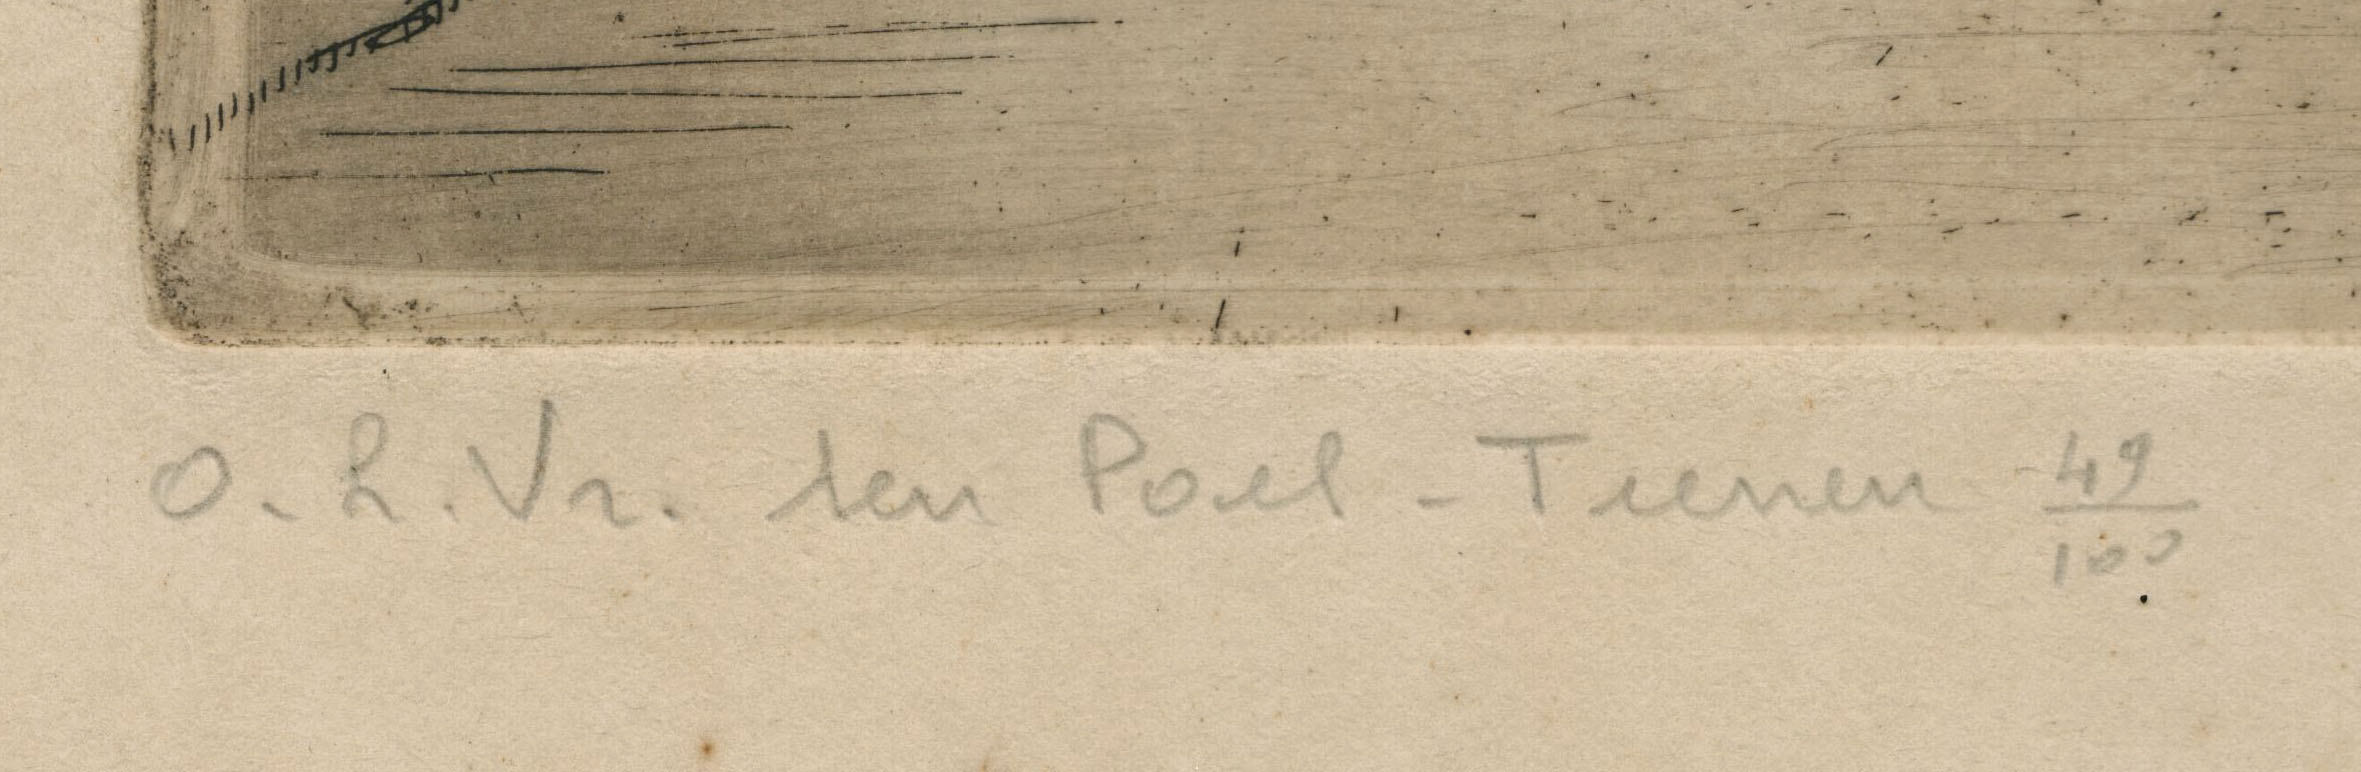 O.L.Vr. ten Poel - Tienen 49/100